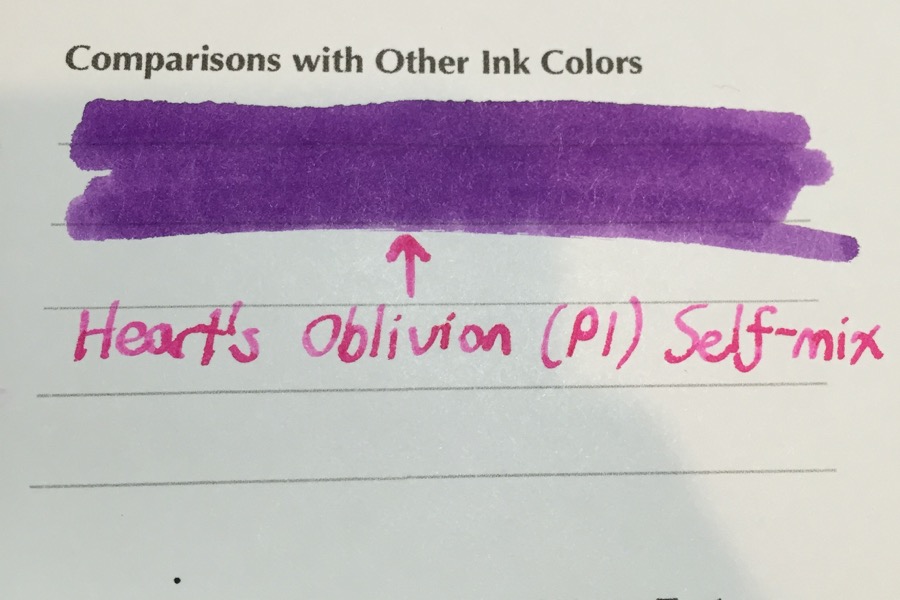 Comparisons with Other Ink Colors
Heart's Oblivion (P1) Self-mix